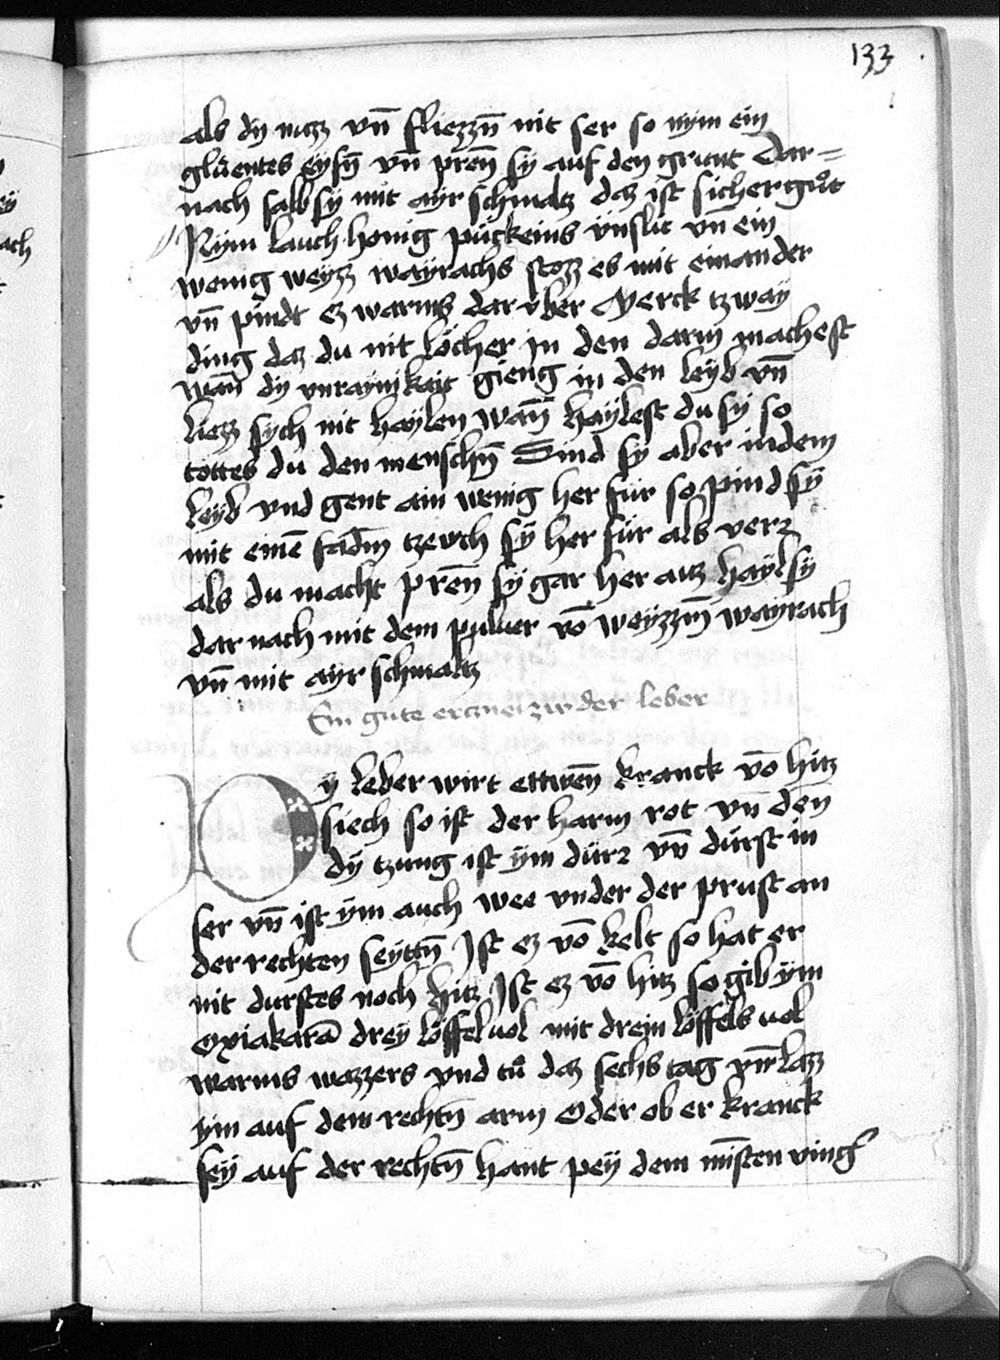 133
als dy nuzz vn̄ fliezzn̄ nit ser so nym ein
glüentes eysn̄ vn̄ pren̄ sy auf den grunt Dar=
nach salb sy mit ayr schmaltz daz ist sicher gůt
Nym lauch honig púckeins vnslit vn̄ ein
wenig weyzz wayrachs stozz es mit einander
vn̄ pindt ez warms dar vber Merck tzway
ding daz du nit löcher in den darm machest
wan̄ dy vnraynikait gieng in den leyb vn̄
liezz sych nit haylen wan̄ haylest du sy so
töttes du den menschn̄ Sind sy aber in dem
leyb vnd gent ain wenig her für so pind sy
mit einē fadm̄ tzewch sy her für als verr
als du macht pren̄ sy gar her auz hayl sy
dar nach mit dem puluer vō weyzzm̄ wayrach
vn̄ mit ayr schmaltz
Ein gute ertznei zw der leber
Dy leber wirt ettwen̄ kranck vō hitz
siech so ist der harm rot vn̄ den̄
dy tzung ist ym dürr vn̄ dúrst in
ser vn̄ ist ym auch wee vnder der prust an
der rechten seyttn̄ Ist ez vō kelt so hat er
nit durstes noch hitz Ist ez vō hitz so gib ym
Oxiakarā drey löffel uol mit drein löffels uol
warms wazzers vnd tů daz sechs tag vn̄ lazz
ym auf dem rechtn̄ arm Oder ob er kranck
sey auf der rechtn̄ hant pey dem mīsten ving͛